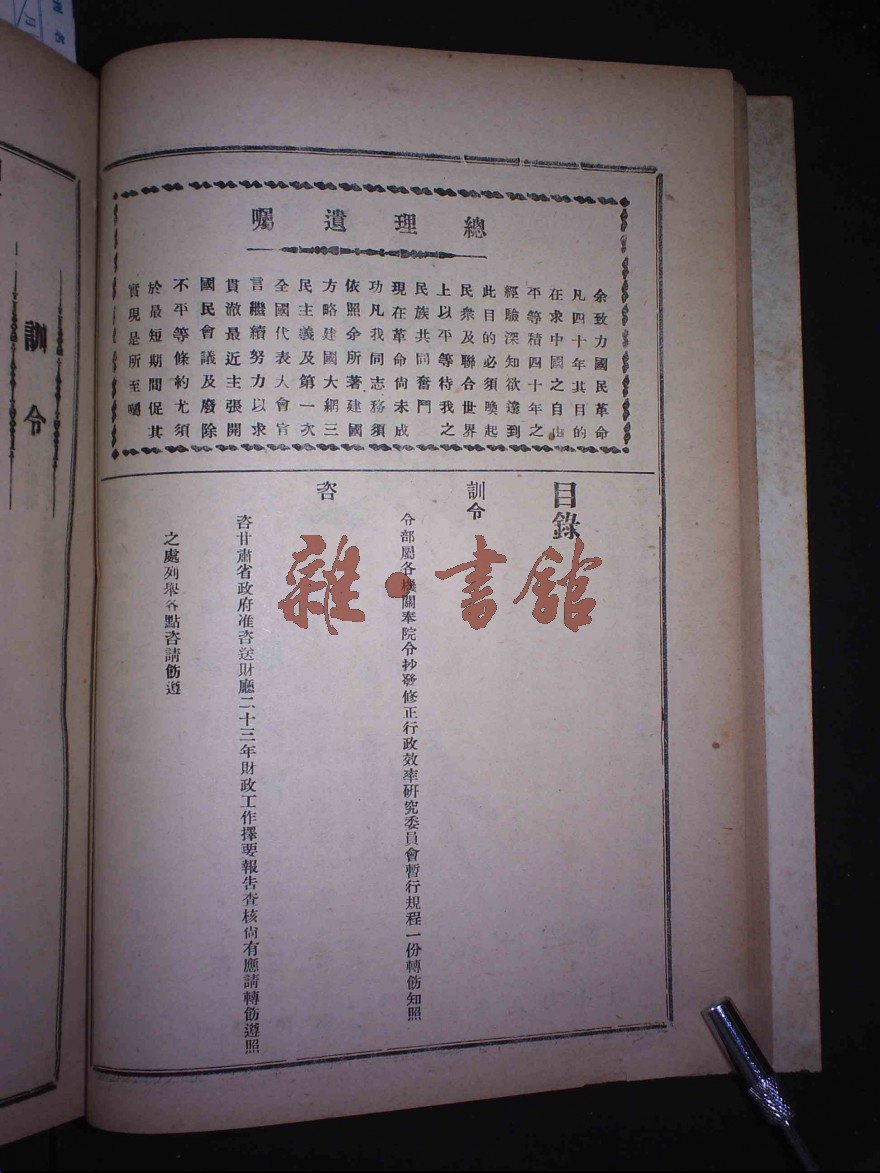 總理遺囑
余致力國民革命
凡四十年其目的
在求中國之自由
平等積四十年之
經驗深知欲達到
此目的必須喚起
民衆及聯合世界
上以平等待我之
民族共同奮鬥
現在革命尚未成
功凡我同志務須
依照余所著建國
方略建國大綱三
民主義及第一次
全國代表大會宣
言繼續努力以求
貫澈最近主張開
國民會議及廢除
不平等條約尤須
於最短期間促其
實現是所至囑
目錄
訓令
令部屬各機關奉院令抄發修正行政效率研究委員會暫行規程一份轉飭知照
咨
咨甘肅省政府准咨送財廳二十三年財政工作擇要報告查核尙有應請轉飭遵照
之處列舉各點咨請飭遵
雜·書館
訓令